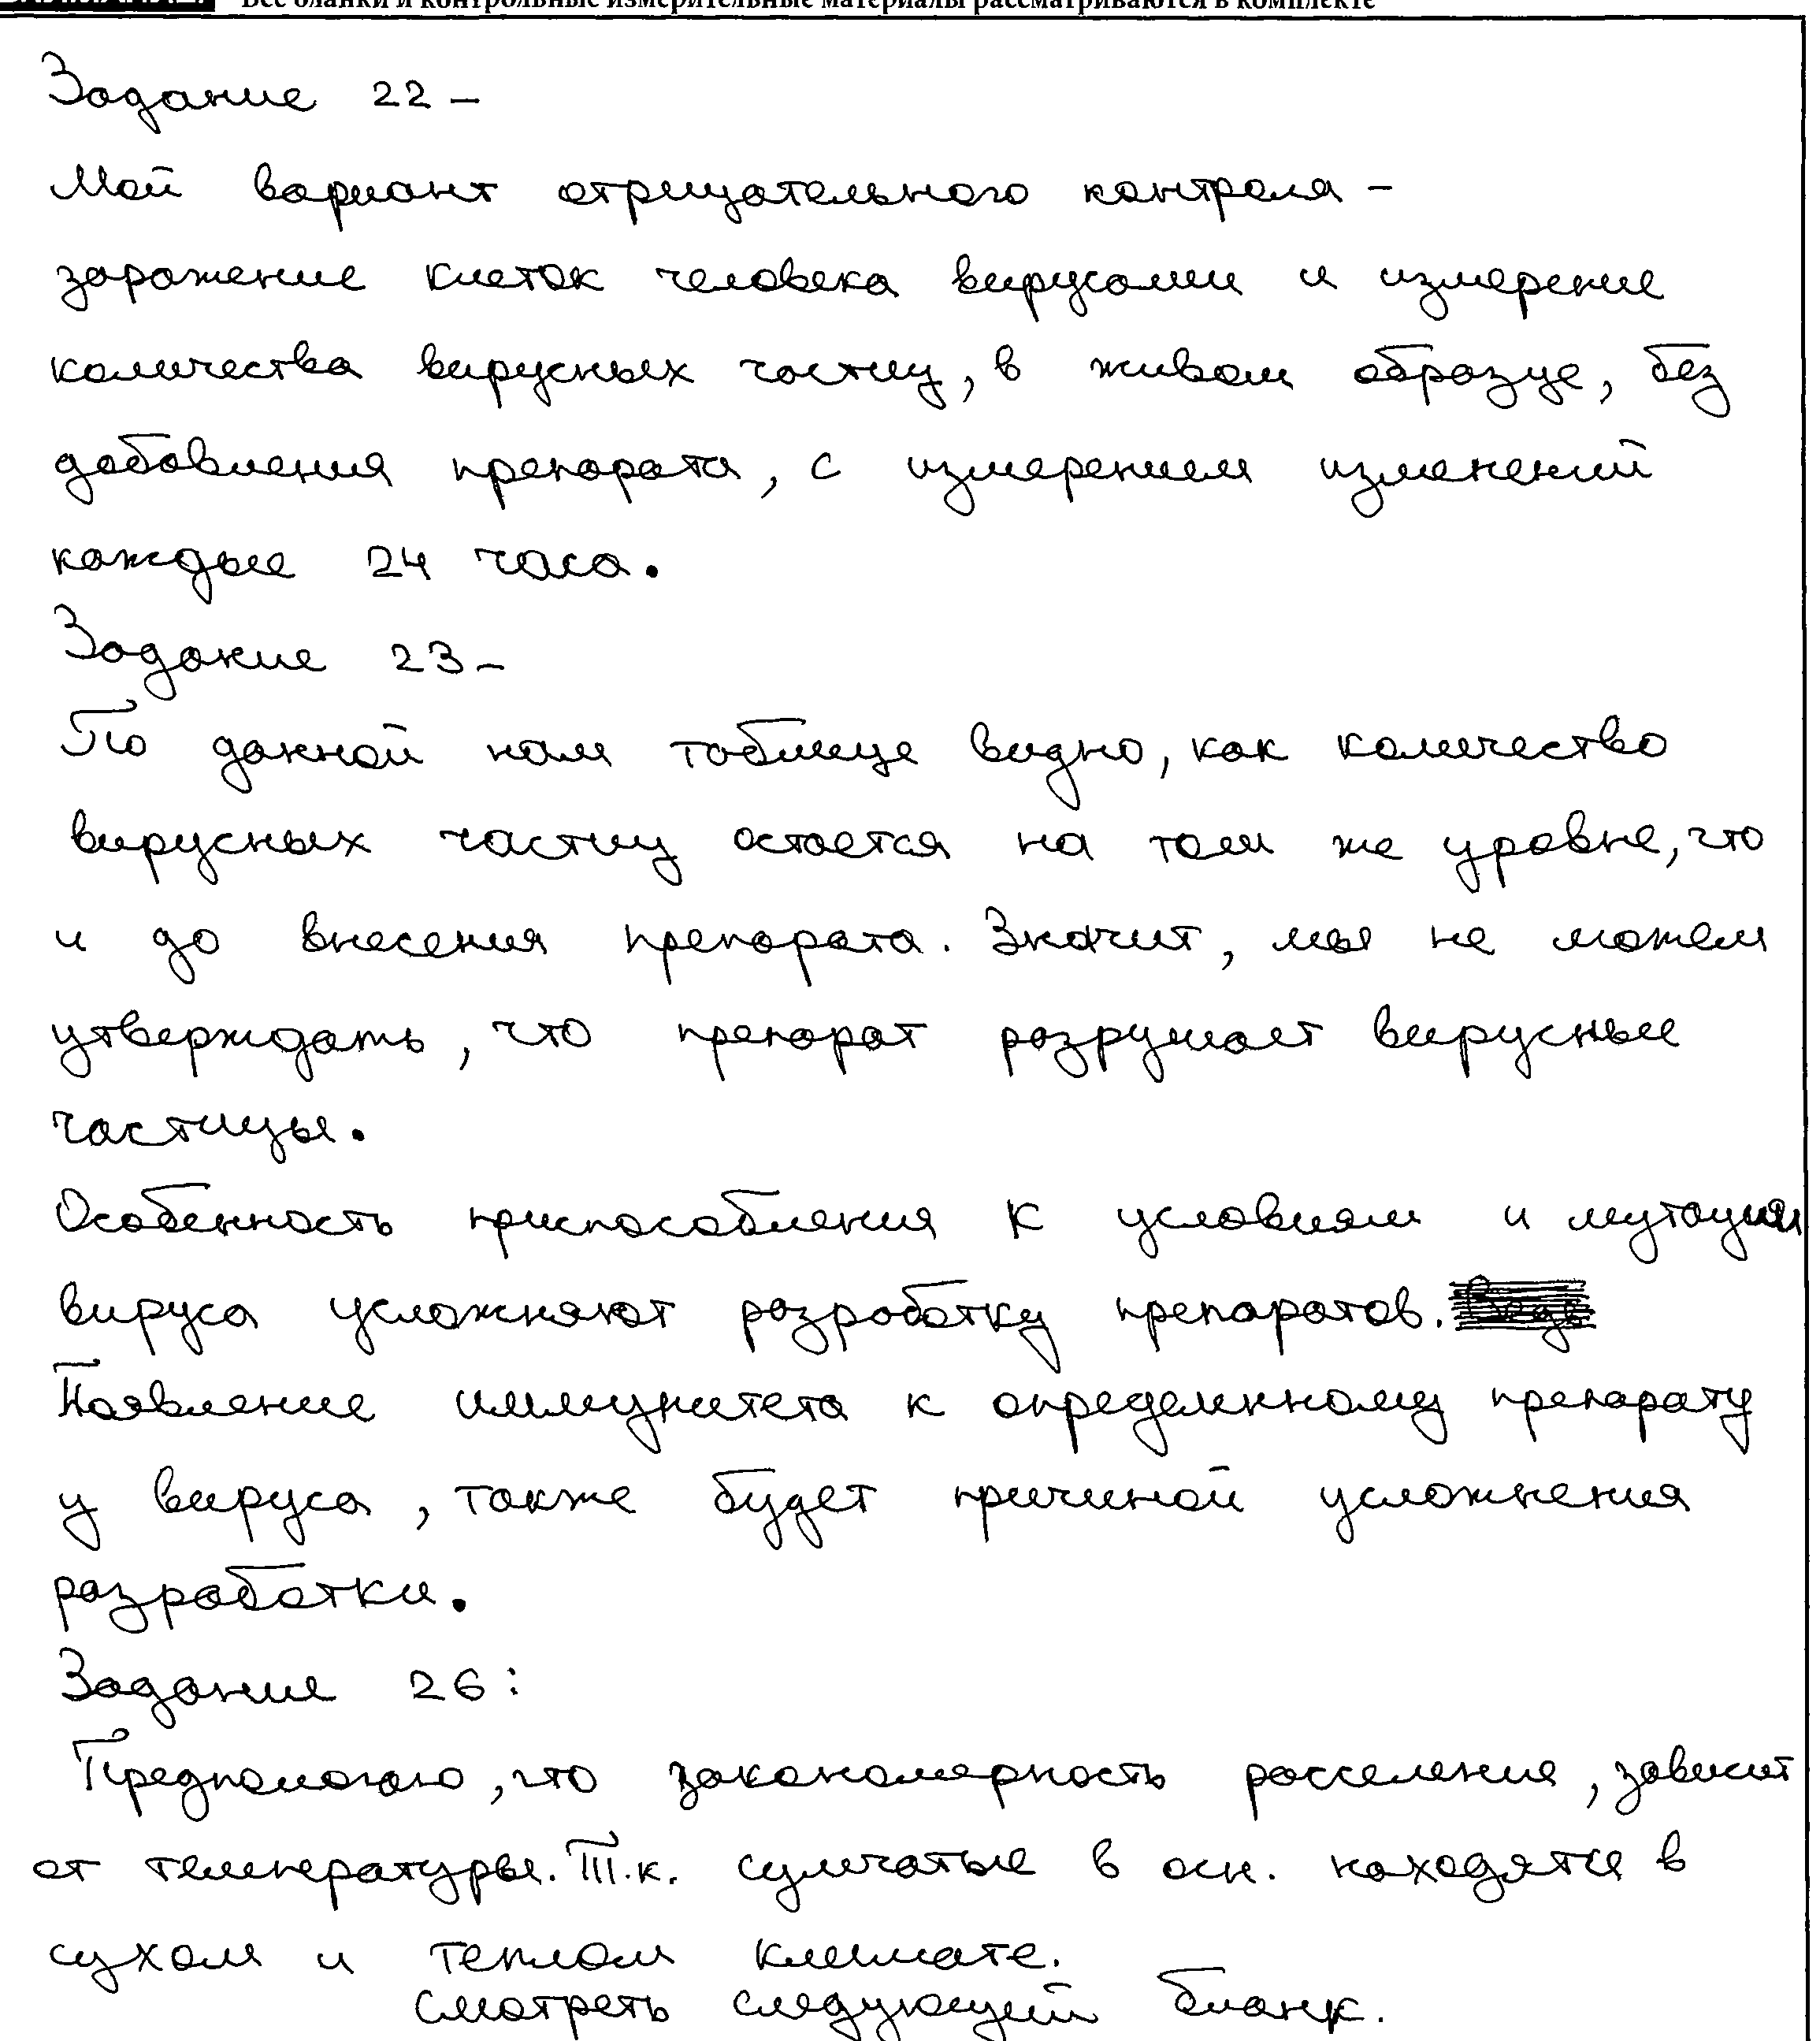 Все бланки и контрольные измерительные материалы рассматриваются в комплекте
Задание 22 –
Мой вариант отрицательного контроля –
заражение клеток человека вирусами и измерение
количества вирусных частиц, в живом образце, без
добавления препарата, с измерением изменений
каждые 24 часа.
Задание 23 –
По данной нам таблице видно, как количество
вирусных частиц остается на том же уровне, что
и до внесения препарата. Значит, мы не можем
утверждать, что препарат разрушает вирусные
частицы.
Особенность приспособления к условиям и мутации
вируса усложняют разработку препаратов.
Появление иммунитета к определенному препарату
у вируса, также будет причиной усложнения
разработки.
Задание 26:
Предполагаю, что закономерность расселения, зависит
от температуры. Т.к. сумчатые в осн. находятся в
сухом и теплом климате.
Смотреть следующий бланк.